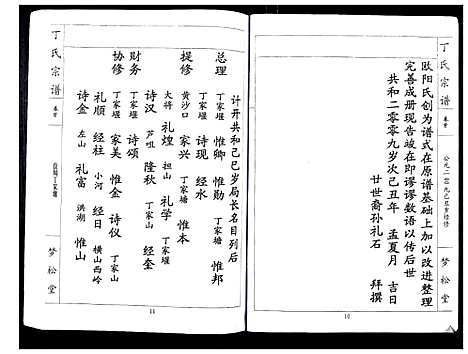 丁氏宗谱
卷首
公元二零零九己丑岁修
梦松堂
欧阳氏创为谱式在原谱基础上加以改进整理
完善成册现告竣在即谬谬数语以传后世
共和二零零九岁次己丑年 孟夏月 吉日
廿世裔孙礼石 拜撰
10
计开共和己巳岁局长名目列后
总理 丁家堰 惟卿 惟勋 丁家堰 惟邦
丁家堰 诗现 经水
提修 黄沙口 家兴 丁家塘 惟本
大将 礼煌 担山 礼学 丁家堰
财务 诗汉 芦咀 隆秋 经奎
丁家堰 经堂 丁家山
协修 丁家塘 家美 惟金 诗仪 丁家山
礼顺 经柱 小河 经日 横山西岭
诗金 左山 礼富 洪湖 惟山
11
丁氏宗谱
卷首
梦松堂